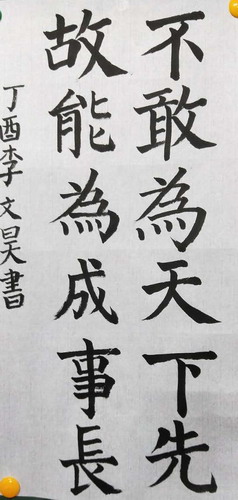 不敢為天下先
故能為成事長
丁酉李文昊書